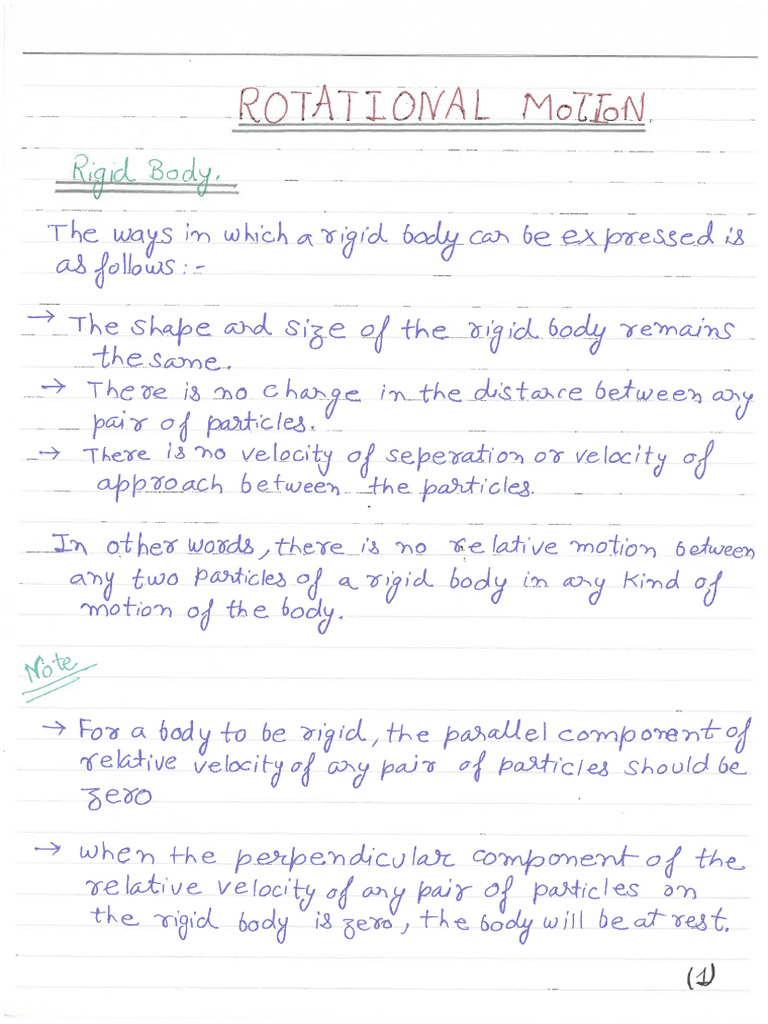 ROTATIONAL MOTION.
Rigid Body.
The ways in which a rigid body can be expressed is
as follows :-
→ The shape and size of the rigid body remains
the same.
→ There is no change in the distance between any
pair of particles.
→ There is no velocity of seperation or velocity of
approach between the particles.
In other words, there is no relative motion between
any two particles of a rigid body in any kind of
motion of the body.
Note
→ For a body to be rigid, the parallel component of
relative velocity of any pair of particles should be
zero
→ when the perpendicular component of the
relative velocity of any pair of particles on
the rigid body is zero, the body will be at rest.
(1)